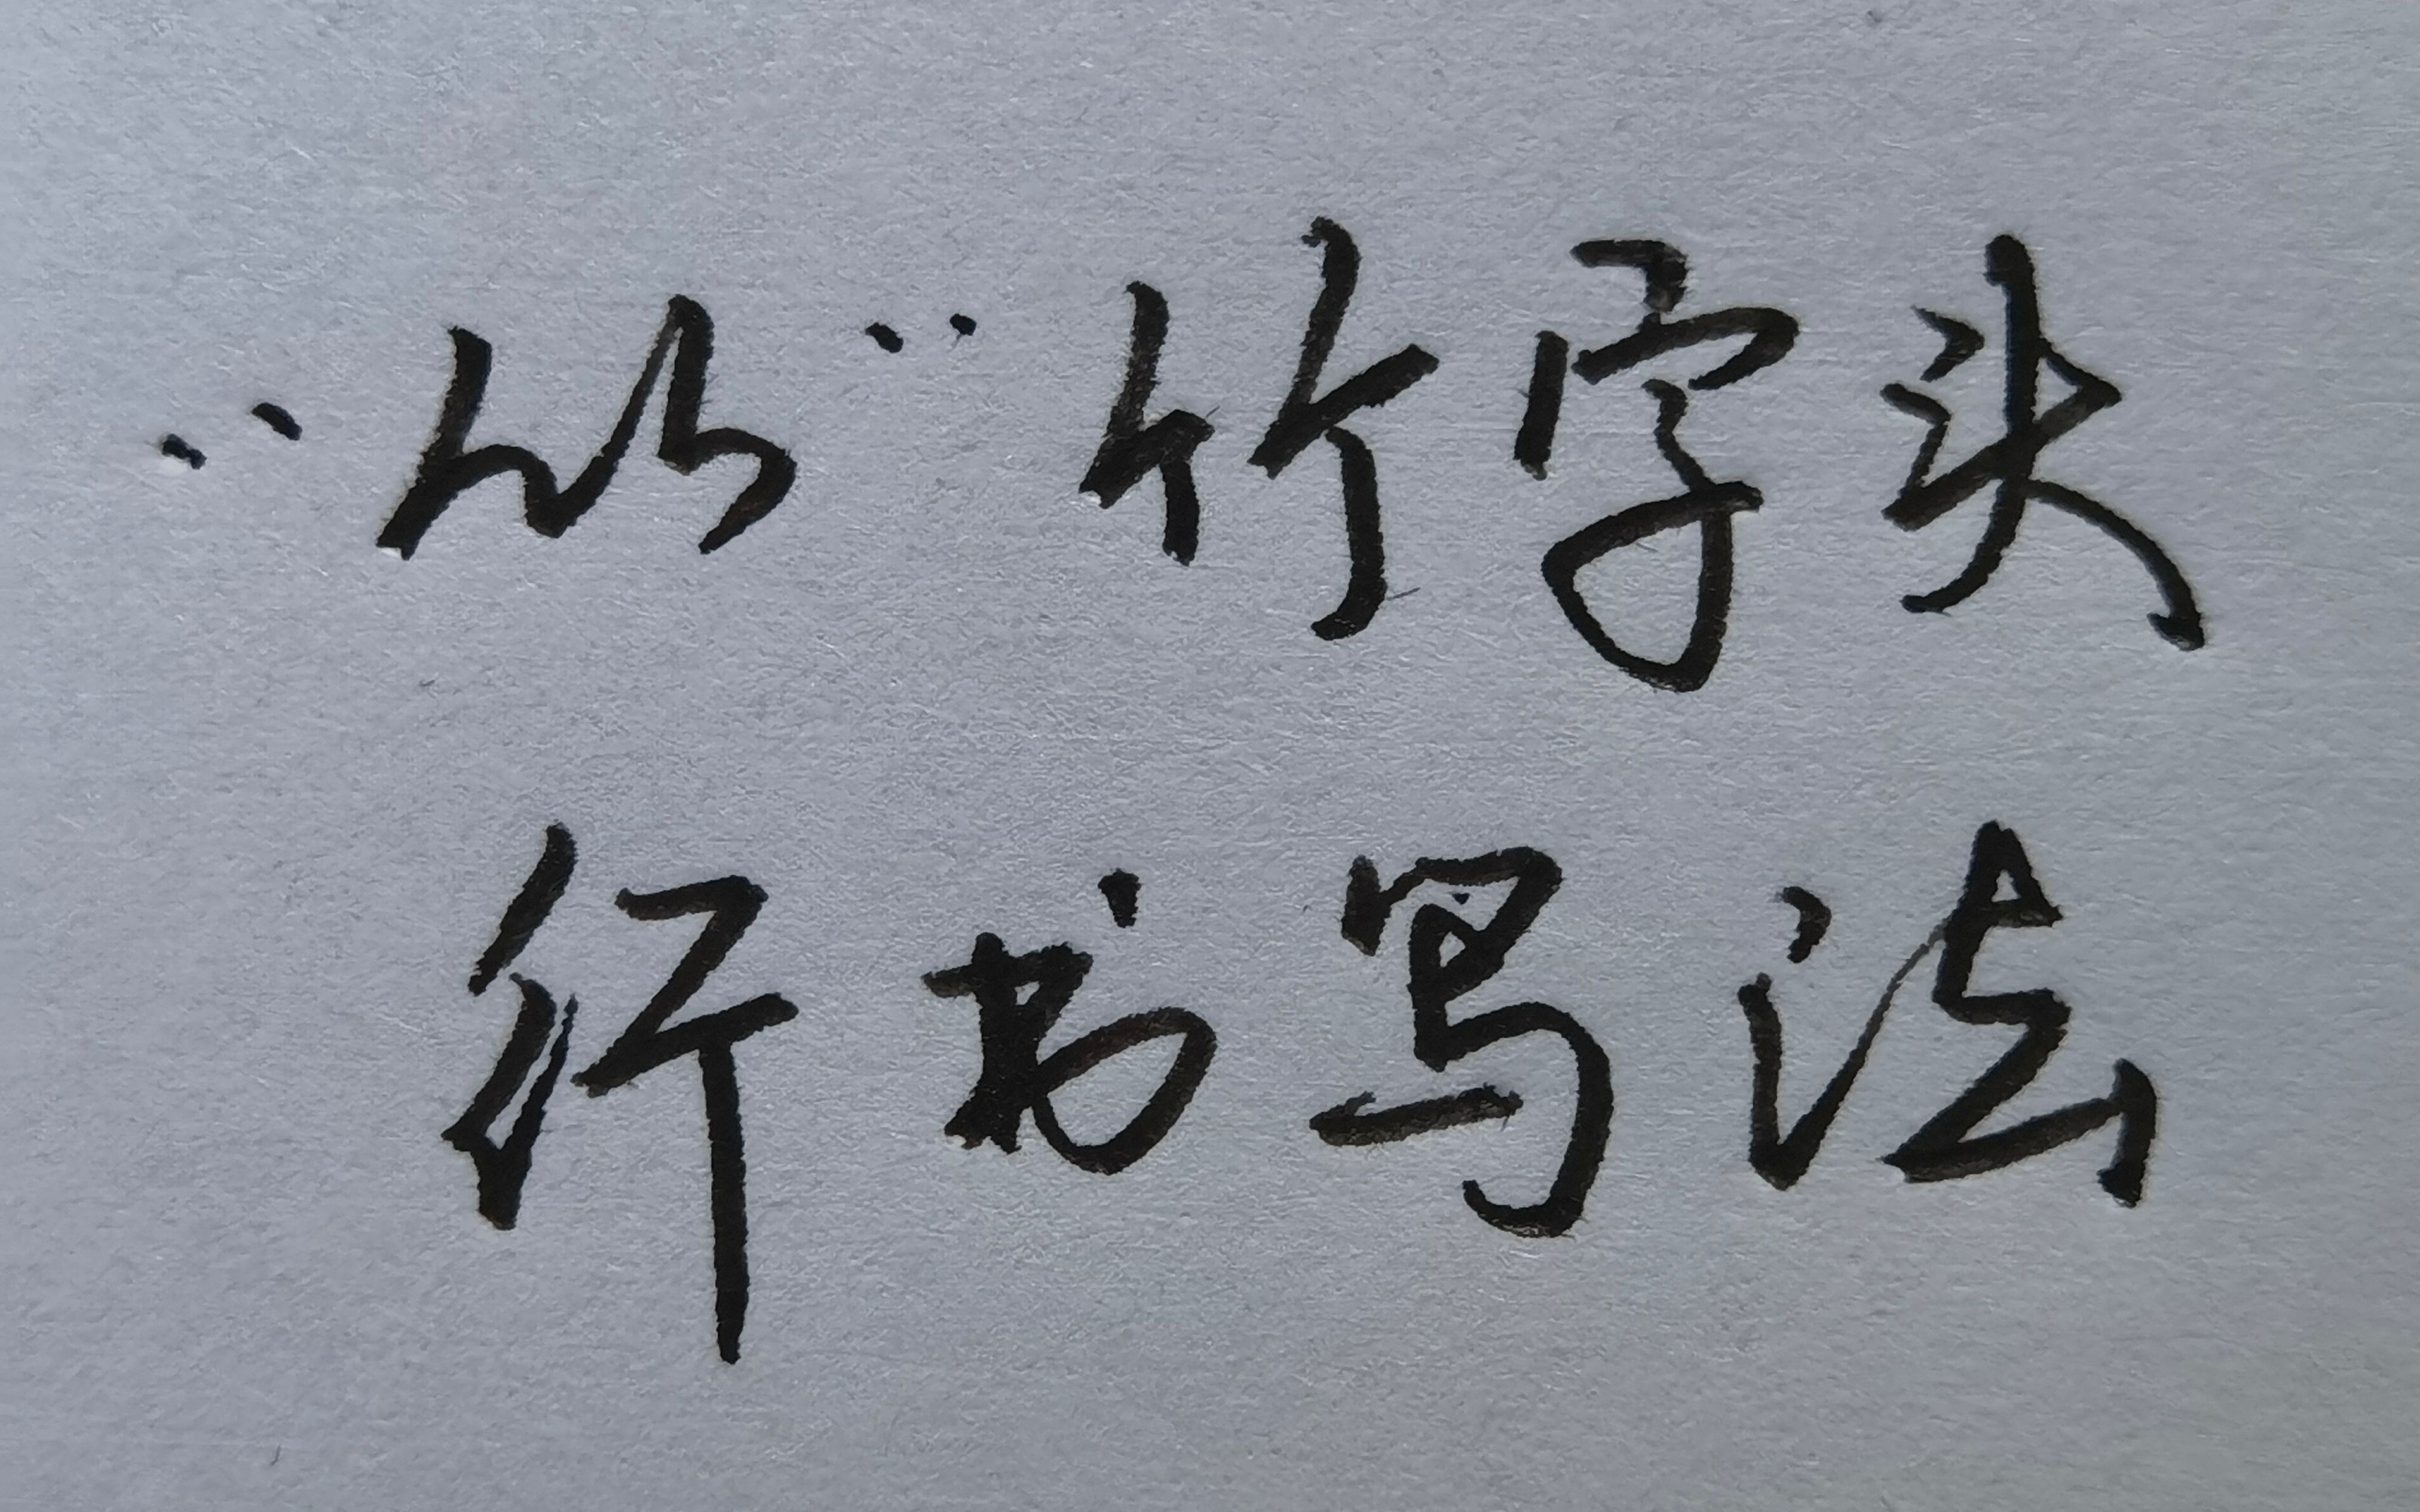 “⺮”竹字头
行书写法